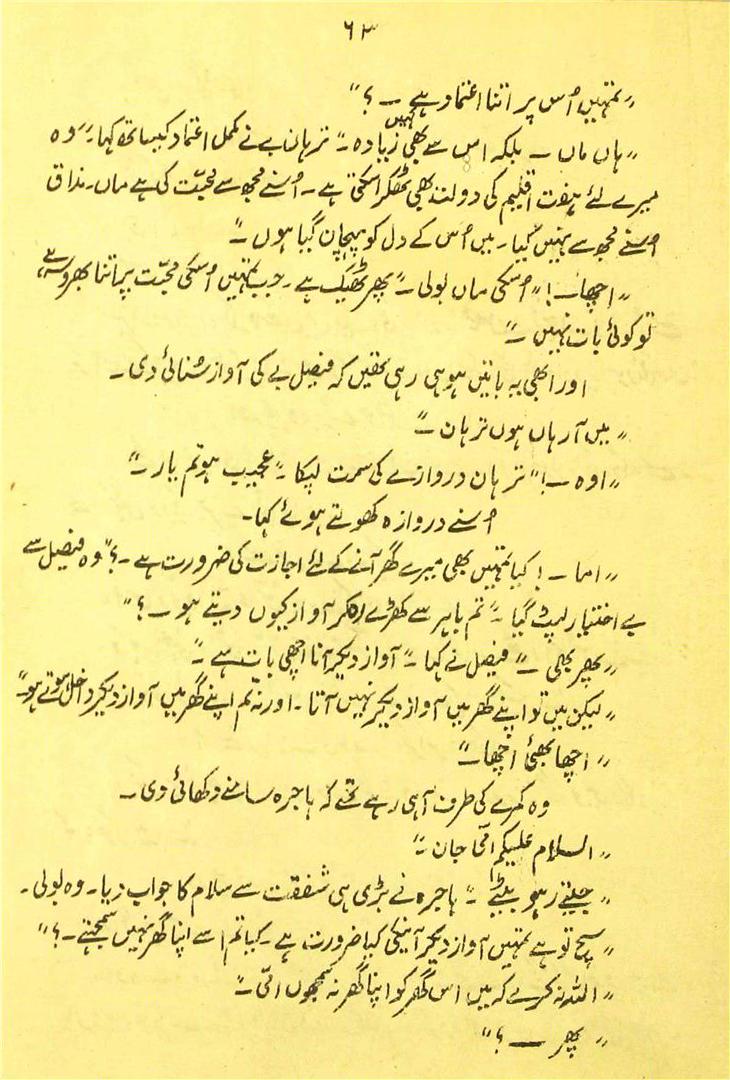 ۶۳
”تمہیں اُس پر اتنا اعتماد ہے ــ ؟“
”ہاں ماں ــ بلکہ اس سے بھی کہیں زیادہ ــ“ ترہان بے نے مکمل اعتماد کیساتھ کہا۔ ”وہ
میرے لئے ہفت اقلیم کی دولت بھی ٹھکرا سکتی ہے۔ اُسنے مجھ سے محبّت کی ہے ماں۔ مذاق
اُسنے مجھ سے نہیں کیا۔ میں اُس کے دل کو پہچان گیا ہوں ــ“
”اچھا ــ !“ اُسکی ماں بولی ــ ”پھر ٹھیک ہے۔ جب تمہیں اُسکی محبّت پر اتنا بھروسہ ہے
تو کوئی بات نہیں ــ“
اور ابھی یہ باتیں ہو ہی رہی تھیں کہ فیصل بے کی آواز سُنائی دی۔
”میں آرہاں ہوں ترہان ــ“
”اوہ ــ !“ ترہان دروازے کی سمت لپکا ــ ”عجیب ہو تم یار ــ“
اُسنے دروازہ کھولتے ہوئے کہا۔
”اما ــ ! کیا تمہیں بھی میرے گھر آنے کے لئے اجازت کی ضرورت ہے ــ ؟“ وہ فیصل سے
بے اختیار لپٹ گیا ــ ”تم باہر سے کھڑے رہکر آواز کیوں دیتے ہو ــ ؟“
”پھر بھی ــ“ فیصل نے کہا ــ ”آواز دیکر آنا اچھی بات ہے ــ“
”لیکن میں تو اپنے گھر میں آواز دیکر نہیں آتا۔ اور نہ تم اپنے گھر میں آواز دیکر داخل ہوتے ہو ــ“
”اچھا بھئی اچھا ــ“
وہ کمرے کی طرف آہی رہے تھے کہ ہاجرہ سامنے دکھائی دی۔
”السلام علیکم امّی جان ــ“
”جیتے رہو بیٹے ــ“ ہاجرہ نے بڑی ہی شفقت سے سلام کا جواب دیا۔ وہ بولی۔
”سچ تو ہے تمہیں آواز دیکر آنیکی کیا ضرورت ہے۔ کیا تم اسے اپنا گھر نہیں سمجھتے ــ ؟“
”اللہ نہ کرے کہ میں اس گھر کو اپنا گھر نہ سمجھوں امّی ــ“
”پھر ــ ؟“